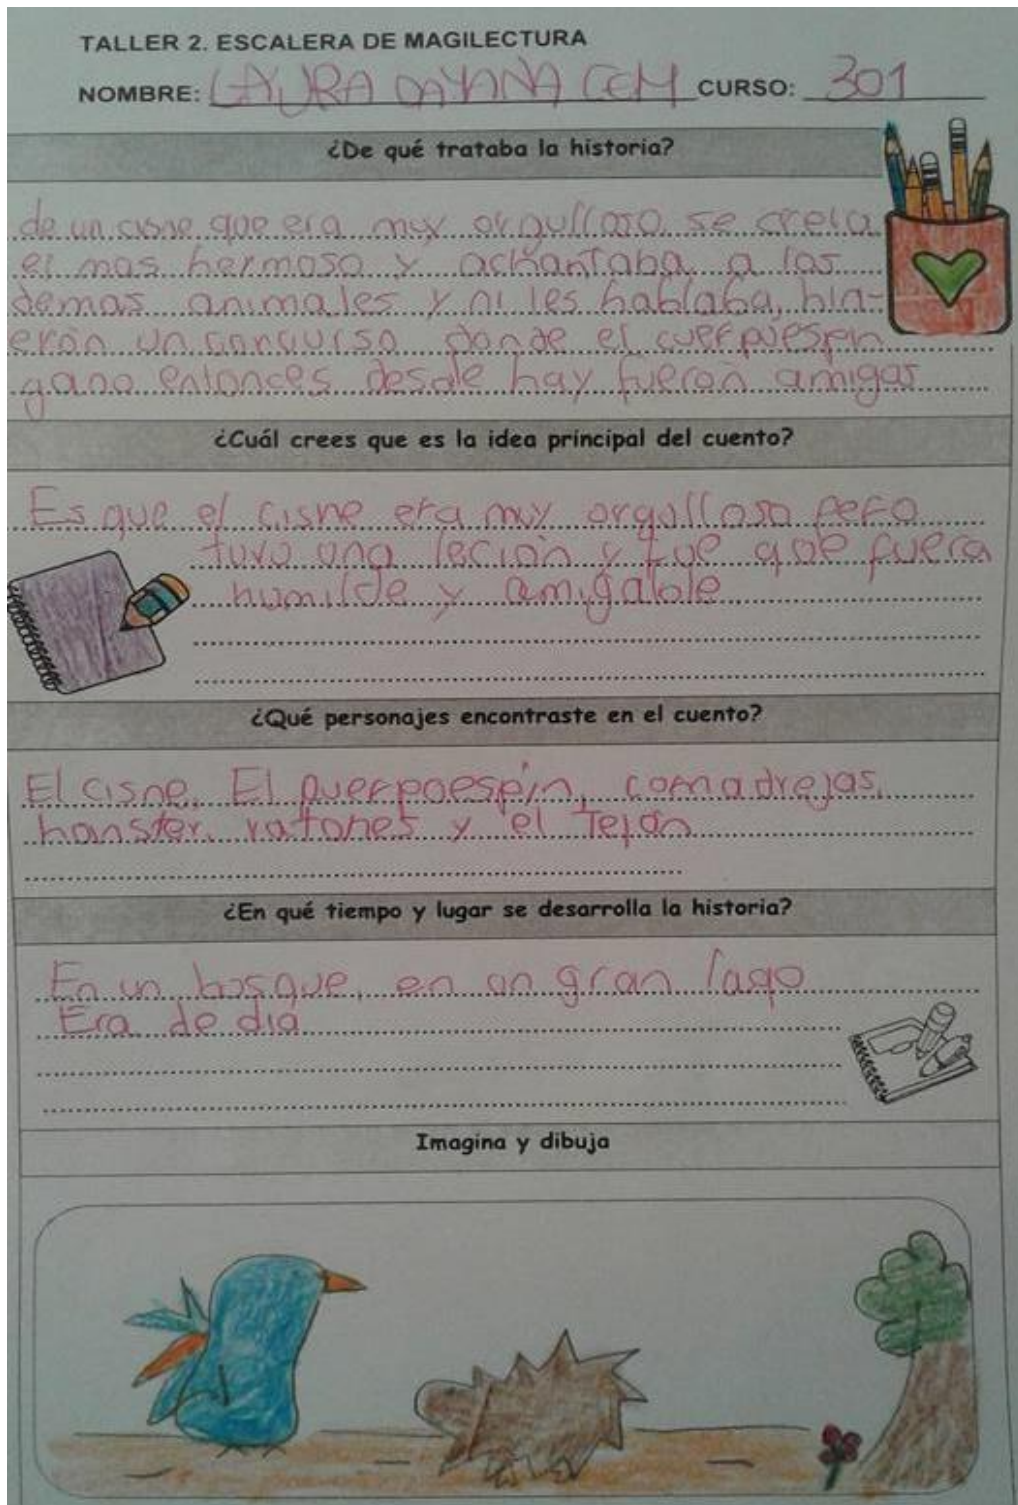 TALLER 2. ESCALERA DE MAGILECTURA
NOMBRE: LAURA DAYANA CEM CURSO: 301
¿De qué trataba la historia?
de un cisne que era muy orgulloso se creia
el mas hermoso y achantaba a los
demas animales y ni les hablaba, hia-
eron un concurso donde el cuerpuespin
gano entonces desde hay fueron amigos
¿Cuál crees que es la idea principal del cuento?
Es que el cisne era muy orgulloso pero
tuvo una leción y fue que fuera
humilde y amigable
¿Qué personajes encontraste en el cuento?
El cisne, El puerpoespín, comadrejas,
hanster, ratones y el Tejón
¿En qué tiempo y lugar se desarrolla la historia?
En un bosque, en un gran lago
Era de dia
Imagina y dibuja